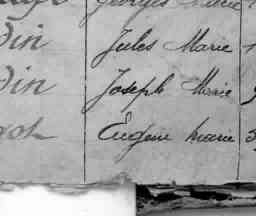 Georges Marie
Vin Jules Marie
Vin Joseph Marie
Eugène Marie